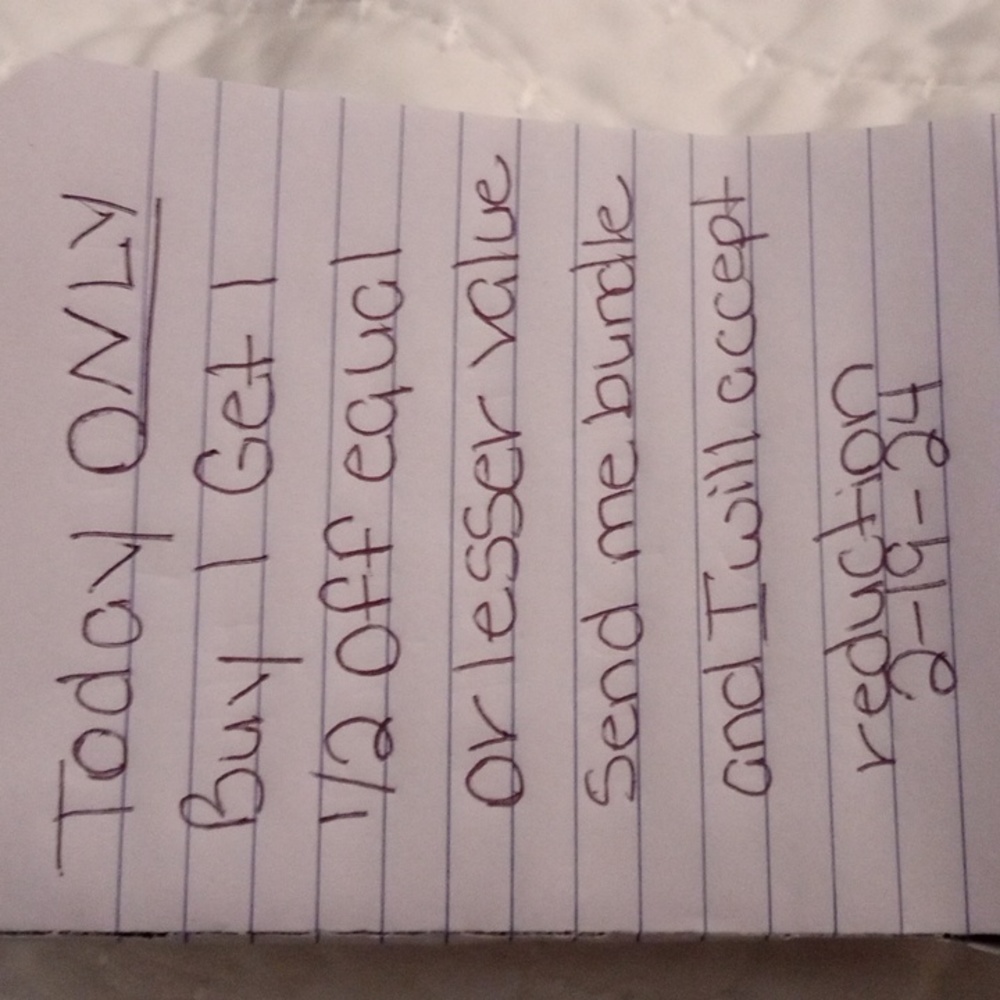 Today ONLY
Buy 1 Get 1
1/2 Off equal
or lesser value
Send me bundle
and I will accept
reduction
2-19-24